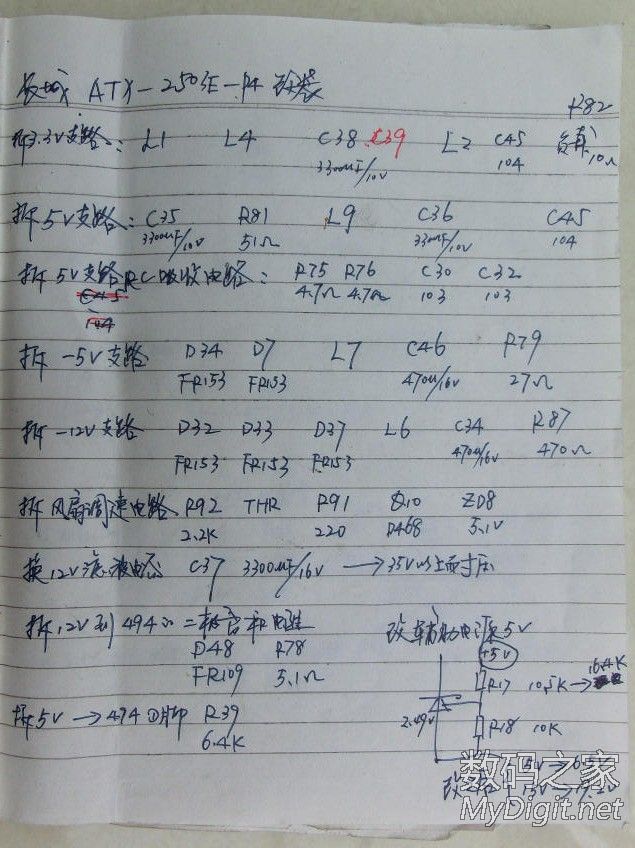 长城 ATX-250SE-P4 改装
R82
拆3.3V支路: L1 L4 C38 C39 L2 C45 负载
3300uF/10V 104 10Ω
拆5V支路: C35 R81 L9 C36 C45
3300uF/10V 51Ω 3300uF/10V 104
拆5V支路RC吸收电路: R75 R76 C30 C32
C45 4.7Ω 4.7Ω 103 103
104
拆-5V支路 D34 D7 L7 C46 R79
FR153 FR153 470u/16V 27Ω
拆-12V支路 D32 D33 D37 L6 C34 R87
FR153 FR153 FR153 470u/16V 470Ω
拆风扇调速电路 R92 THR R91 Q10 ZD8
2.2K 220 D468 5.1V
换12V滤波电容 C37 3300uF/16V → 35V以上耐压
拆12V到494的二极管和电阻
D48 R78
FR109 5.1Ω
拆5V → 494①脚 R39
6.4K
改辅助电源5V
+5V
R17 10.5K → 16.4K
2.49V
R18 10K
5V → 6.5V
改之后
数码之家
MyDigit.net